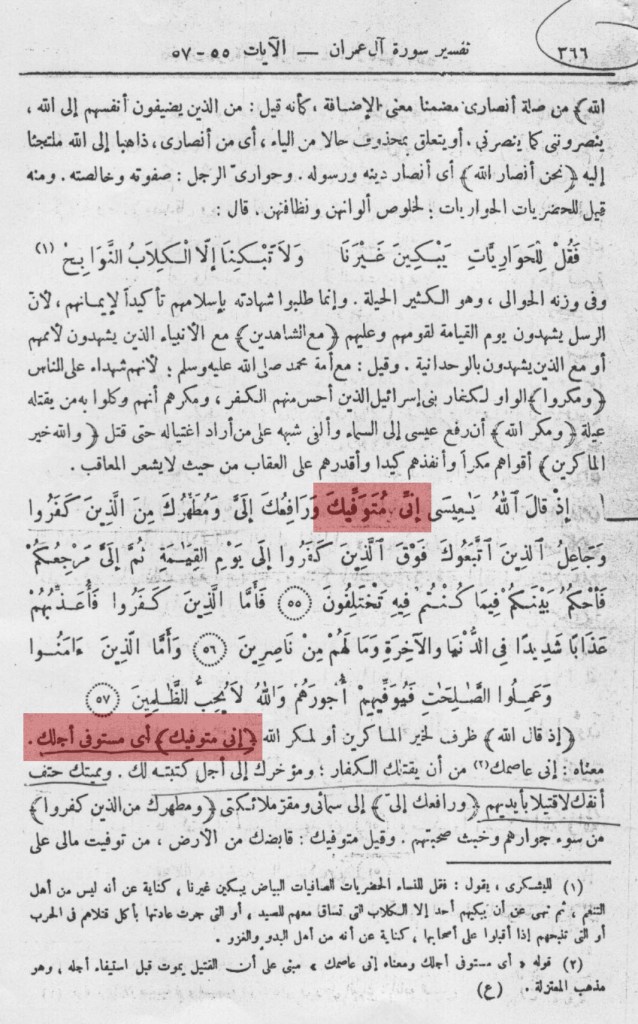 ٣٦٦ تفسير سورة آل عمران — الآيات ٥٥-٥٧
الله﴾ من صلة أنصارى مضمنا معنى الإضافة ، كأنه قيل : من الذين يضيفون أنفسهم إلى الله ،
ينصروننى كما ينصرنى . أو يتعلق بمحذوف حالا من الياء ، أى من أنصارى ، ذاهبا إلى الله ملتجئا
إليه ﴿نحن أنصار الله﴾ أى أنصار دينه ورسوله . وحوارىّ الرجل : صفوته وخالصته . ومنه
قيل للحضريات الحواريات ؛ لخلوص ألوانهن ونظافتهن . قال :
فَقُلْ لِلْحَوَارِيَّاتِ يَبْكِينَ غَيْرَنَا وَلَا تَبْكِنَا إلَّا الْكِلَابُ النَّوَابِحُ (١)
وفى وزنه الحوالى ، وهو الكثير الحيلة . وإنما طلبوا شهادته بإسلامهم تأكيداً لإيمانهم ، لأنّ
الرسل يشهدون يوم القيامة لقومهم وعليهم ﴿مع الشاهدين﴾ مع الأنبياء الذين يشهدون لأممهم
أو مع الذين يشهدون بالوحدانية . وقيل : مع أمة محمد صلى الله عليه وسلم ؛ لأنهم شهداء على الناس
﴿ومكروا﴾ الواو لكفار بنى إسرائيل الذين أحس منهم الكفر ، ومكرهم أنهم وكلوا به من يقتله
غيلة ﴿ومكر الله﴾ أن رفع عيسى إلى السماء وألقى شبهه على من أراد اغتياله حتى قتل ﴿والله خير
الماكرين﴾ أقواهم مكراً وأنفذهم كيدا وأقدرهم على العقاب من حيث لا يشعر المعاقب .
إِذْ قَالَ اللهُ يَـٰعِيسَى إِنِّى مُتَوَفِّيكَ وَرَافِعُكَ إِلَىَّ وَمُطَهِّرُكَ مِنَ الَّذِينَ كَفَرُوا
وَجَاعِلُ الَّذِينَ اتَّبَعُوكَ فَوْقَ الَّذِينَ كَفَرُوا إِلَى يَوْمِ الْقِيَـٰمَةِ ثُمَّ إِلَىَّ مَرْجِعُكُمْ
فَأَحْكُمُ بَيْنَكُمْ فِيمَا كُنْتُمْ فِيهِ تَخْتَلِفُونَ ٥٥ فَأَمَّا الَّذِينَ كَفَرُوا فَأُعَذِّبُهُمْ
عَذَابًا شَدِيدًا فِى الدُّنْيَا وَالْآخِرَةِ وَمَا لَهُمْ مِنْ نَاصِرِينَ ٥٦ وَأَمَّا الَّذِينَ ءَامَنُوا
وَعَمِلُوا الصَّـٰلِحَـٰتِ فَيُوَفِّيهِمْ أُجُورَهُمْ وَاللهُ لَا يُحِبُّ الظَّـٰلِمِينَ ٥٧
﴿إذ قال الله﴾ ظرف لخير الماكرين أو لمكر الله ﴿إنى متوفيك﴾ أى مستوفى أجلك .
معناه : إنى عاصمك (٢) من أن يقتلك الكفار ؛ ومؤخرك إلى أجل كتبته لك . ومميتك حتف
أنفك لا قتيلا بأيديهم ﴿ورافعك إلىّ﴾ إلى سمائى ومقرّ ملائكتى ﴿ومطهرك من الذين كفروا﴾
من سوء جوارهم وخبث صحبتهم . وقيل متوفيك : قابضك من الأرض ، من توفيت مالى على
(١) لليشكرى ، يقول : فقل للنساء الحضريات الصافيات البياض يبكين غيرنا ، كناية عن أنه ليس من أهل
التنعم ، ثم نهى عن أن يبكيهم أحد إلا الكلاب التى تساق معهم للصيد ، أو التى جرت عادتها بأكل قتلاهم فى الحرب
أو التى تنبحهم إذا أقبلوا على أصحابها ، كناية عن أنه من أهل البدو والغزو .
(٢) قوله « أى مستوفى أجلك ومعناه إنى عاصمك » مبنى على أن القتيل يموت قبل استيفاء أجله ، وهو
مذهب المعتزلة . (ع)